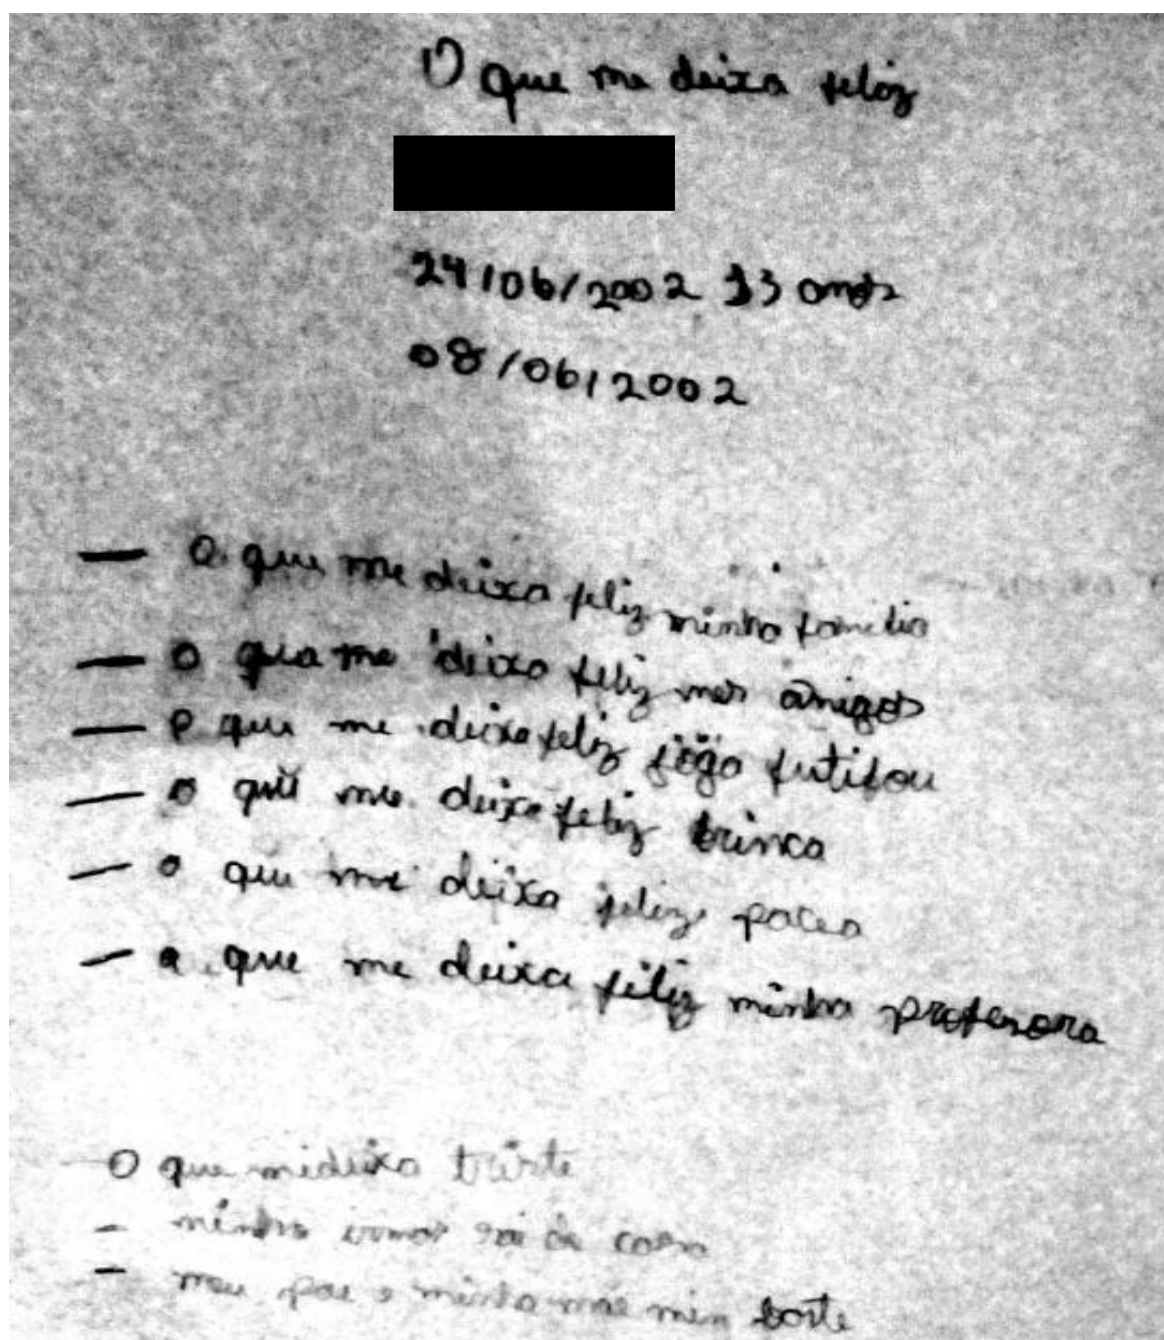 O que me deixa feliz
24/06/2002 13 anos
08/06/2002
— O que me deixa feliz minha familia
— o que me deixa feliz meus amigos
— o que me deixa feliz jogo futibou
— o que me deixa feliz brinca
— o que me deixa feliz
— o que me deixa feliz minha profesora
O que mideixa triste
- minha sai de casa
- meu pai e minha mae min bate